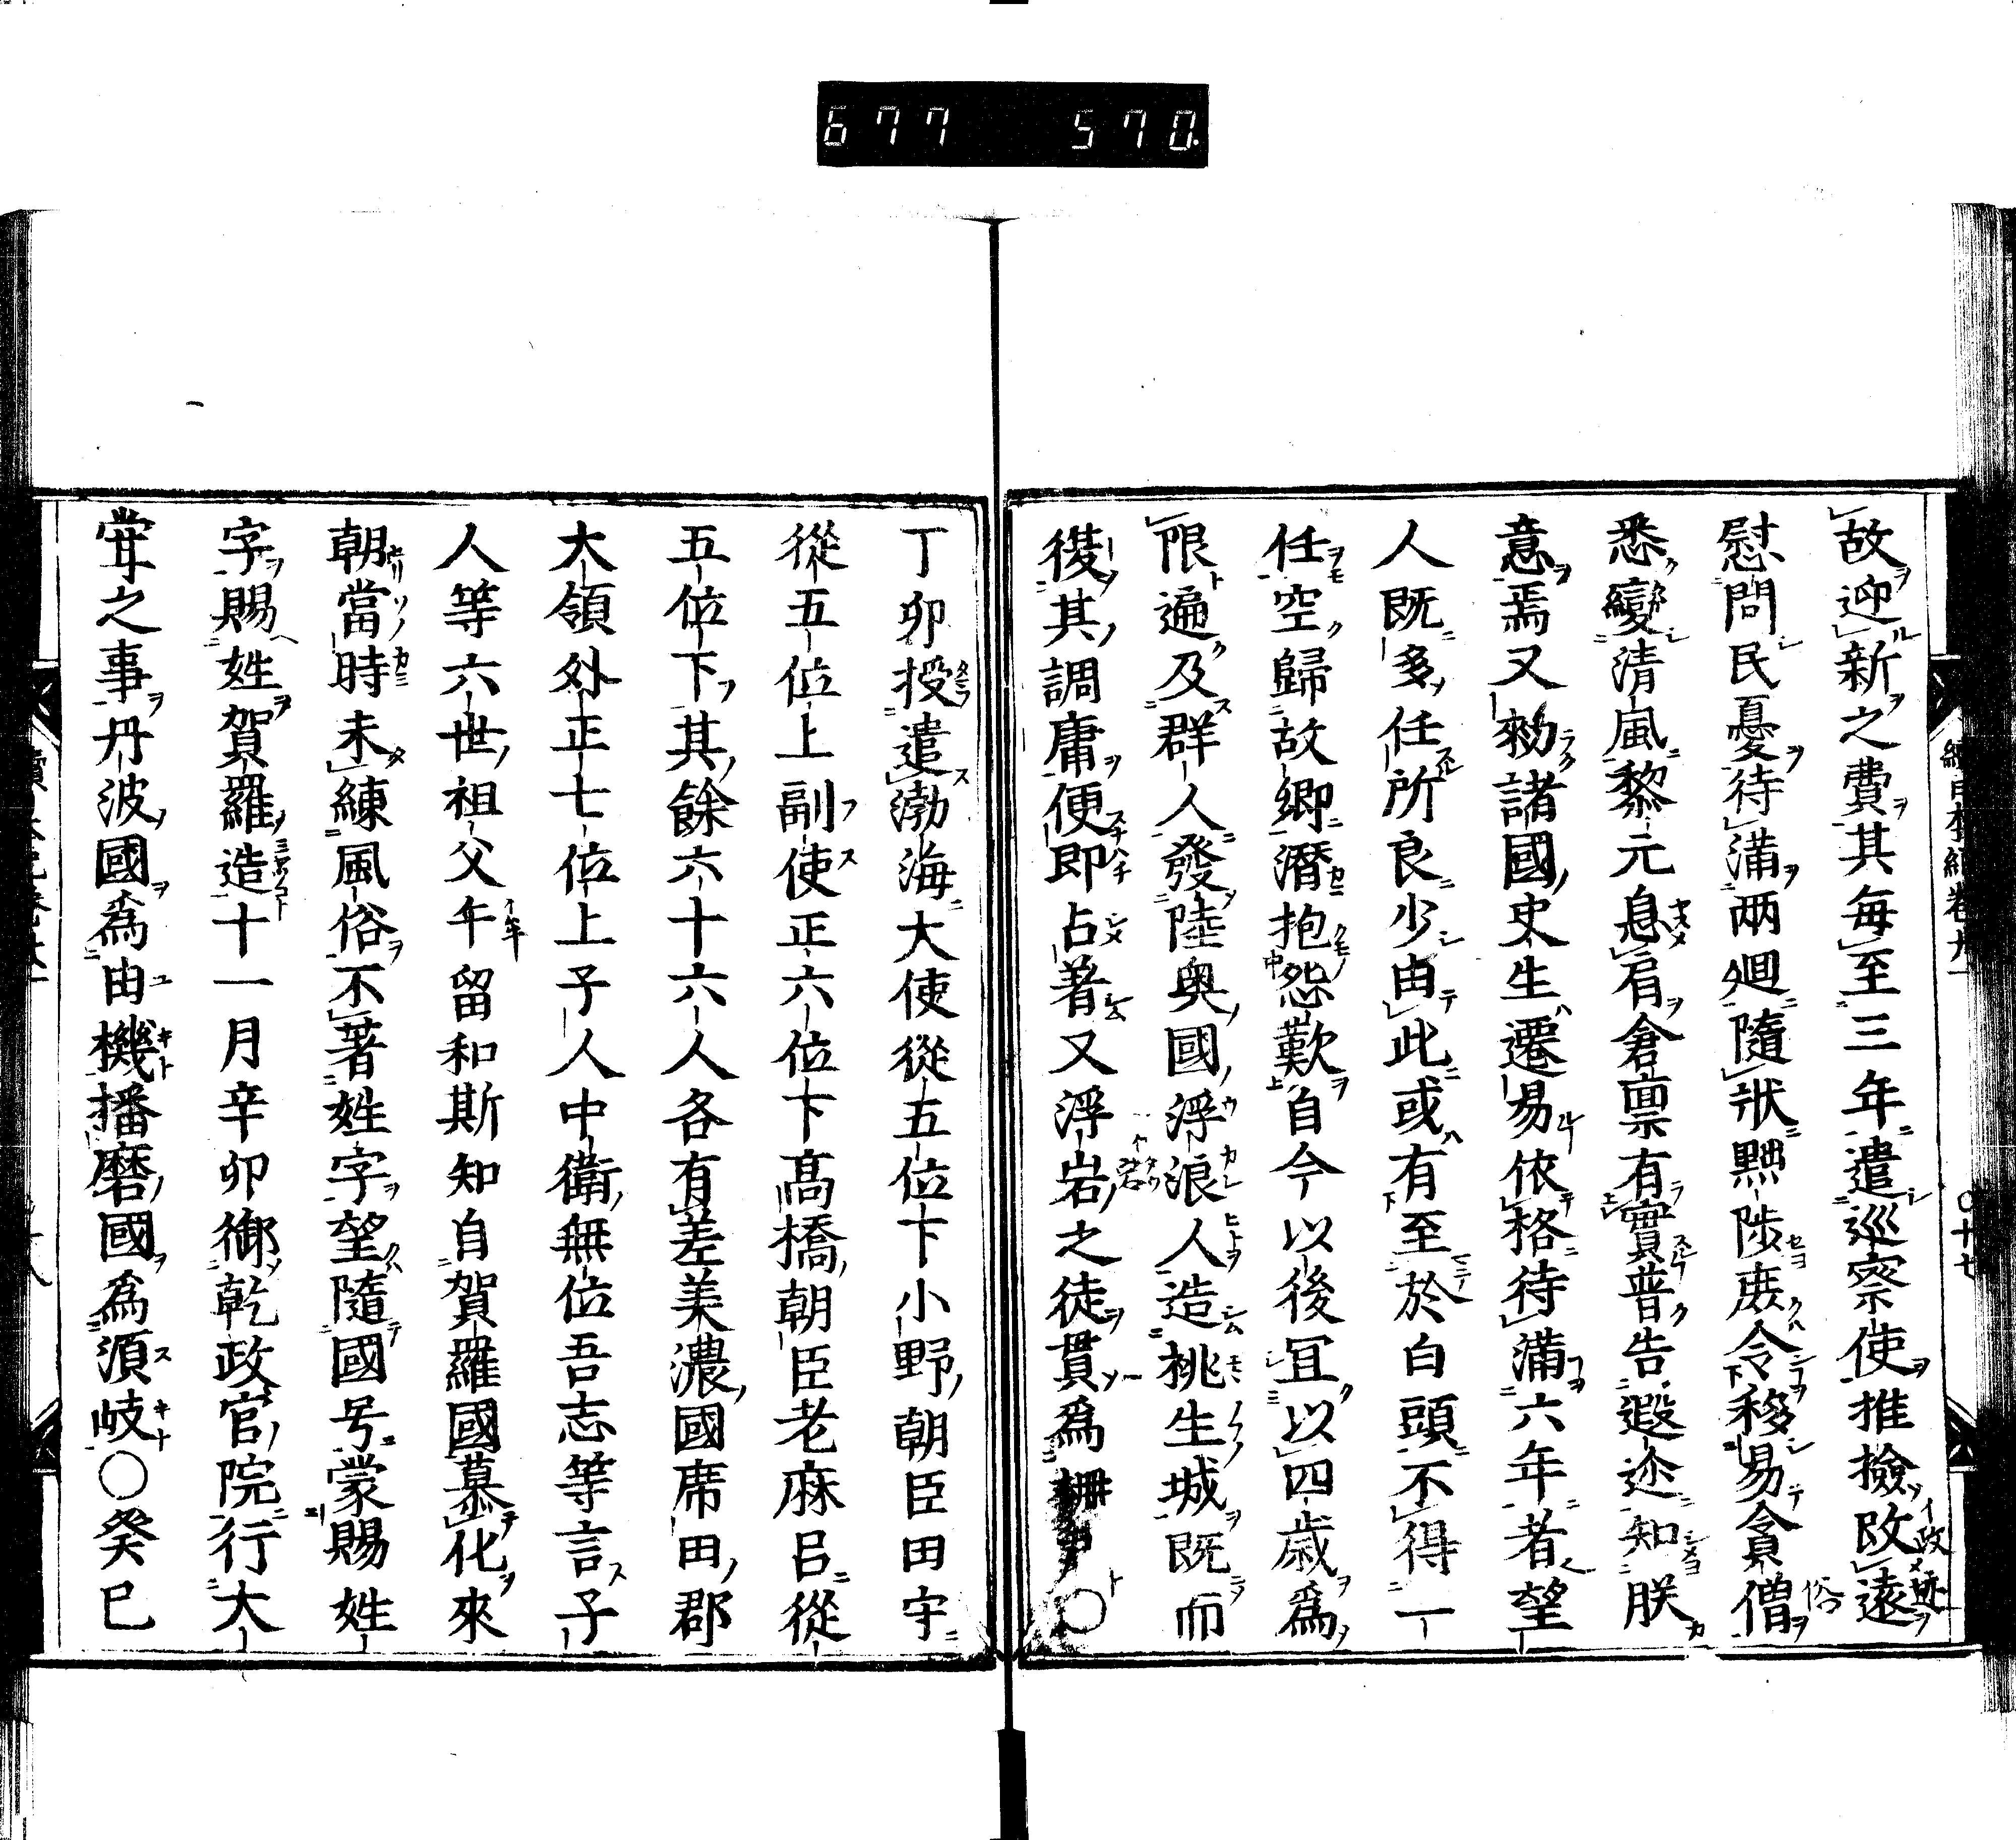 677 570.
故迎新之費其毎至三年遣巡察使推撿政遠
慰問民憂待滿兩廻隨狀黜陟庶令移易貪僧
悉變清風黎元息肩倉禀有實普告遐迩知朕
意焉又勑諸國史生遷易依格待滿六年者望
人既多任所良少由此或有至於白頭不得一
任空歸故郷潛抱怨歎自今以後冝以四歳爲
限遍及群人發陸奥國浮浪人造桃生城既而
復其調庸便即占著又浮岩之徒貫爲柵戸〇
丁卯授遣渤海大使從五位下小野朝臣田守
從五位上副使正六位下髙橋朝臣老麻呂從
五位下其餘六十六人各有差美濃國席田郡
大領外正七位上子人中衛無位吾志等言子
人等六世祖父乎留和斯知自賀羅國慕化來
朝當時未練風俗不著姓字望隨國号蒙賜姓
字賜姓賀羅造十一月辛卯御乾政官院行大
甞之事丹波國爲由機播磨國爲湏岐〇癸巳